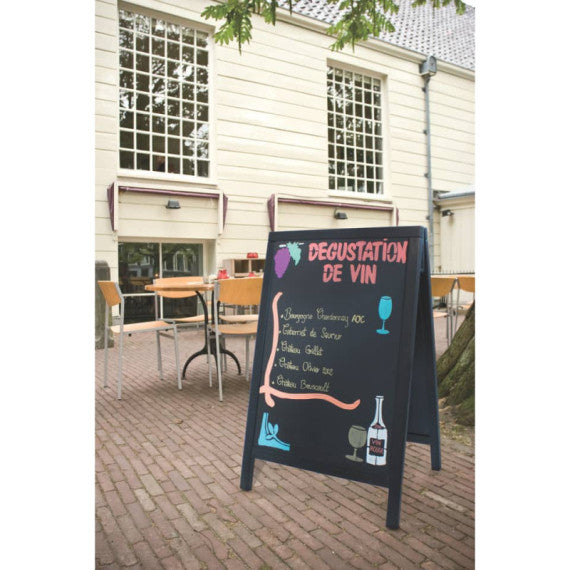 DEGUSTATION
DE VIN
Bourgogne Chardonnay AOC
Cabernet de Saumur
Château Grillet
Château Olivier
Château
VIN
ROUGE